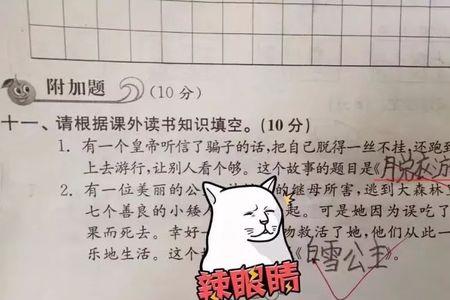 附加题 (10分)
十一、请根据课外读书知识填空。(10分)
1. 有一个皇帝听信了骗子的话,把自己脱得一丝不挂,还跑
上去游行,让别人看个够。这个故事的题目是《脱衣
2. 有一位美丽的公 的继母所害,逃到大森林
七个善良的小矮人 起。可是她因为误吃了
果而死去。幸好 物救活了她,他们从此一
乐地生活。这个 白雪公主》。
辣眼睛